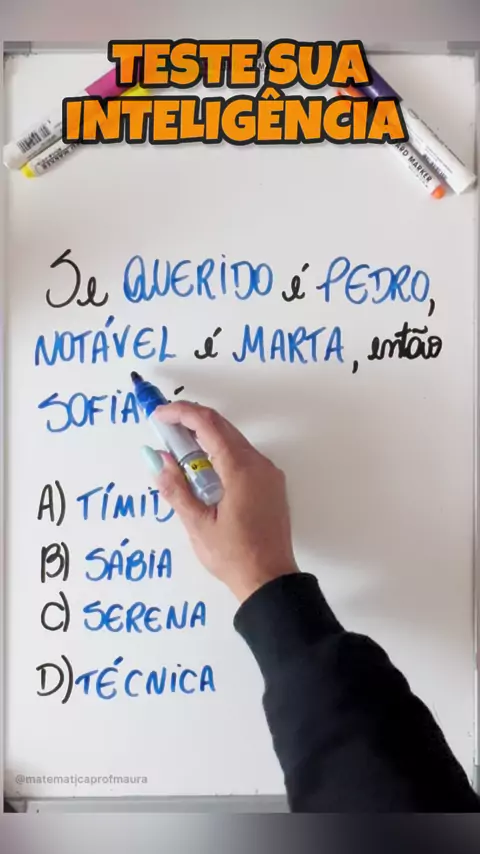 TESTE SUA
INTELIGÊNCIA
Se QUERIDO é PEDRO,
NOTÁVEL é MARTA, então
SOFIA
A)
B) SÁBIA
C) SERENA
D) TÉCNICA
@matematicaprofmaura